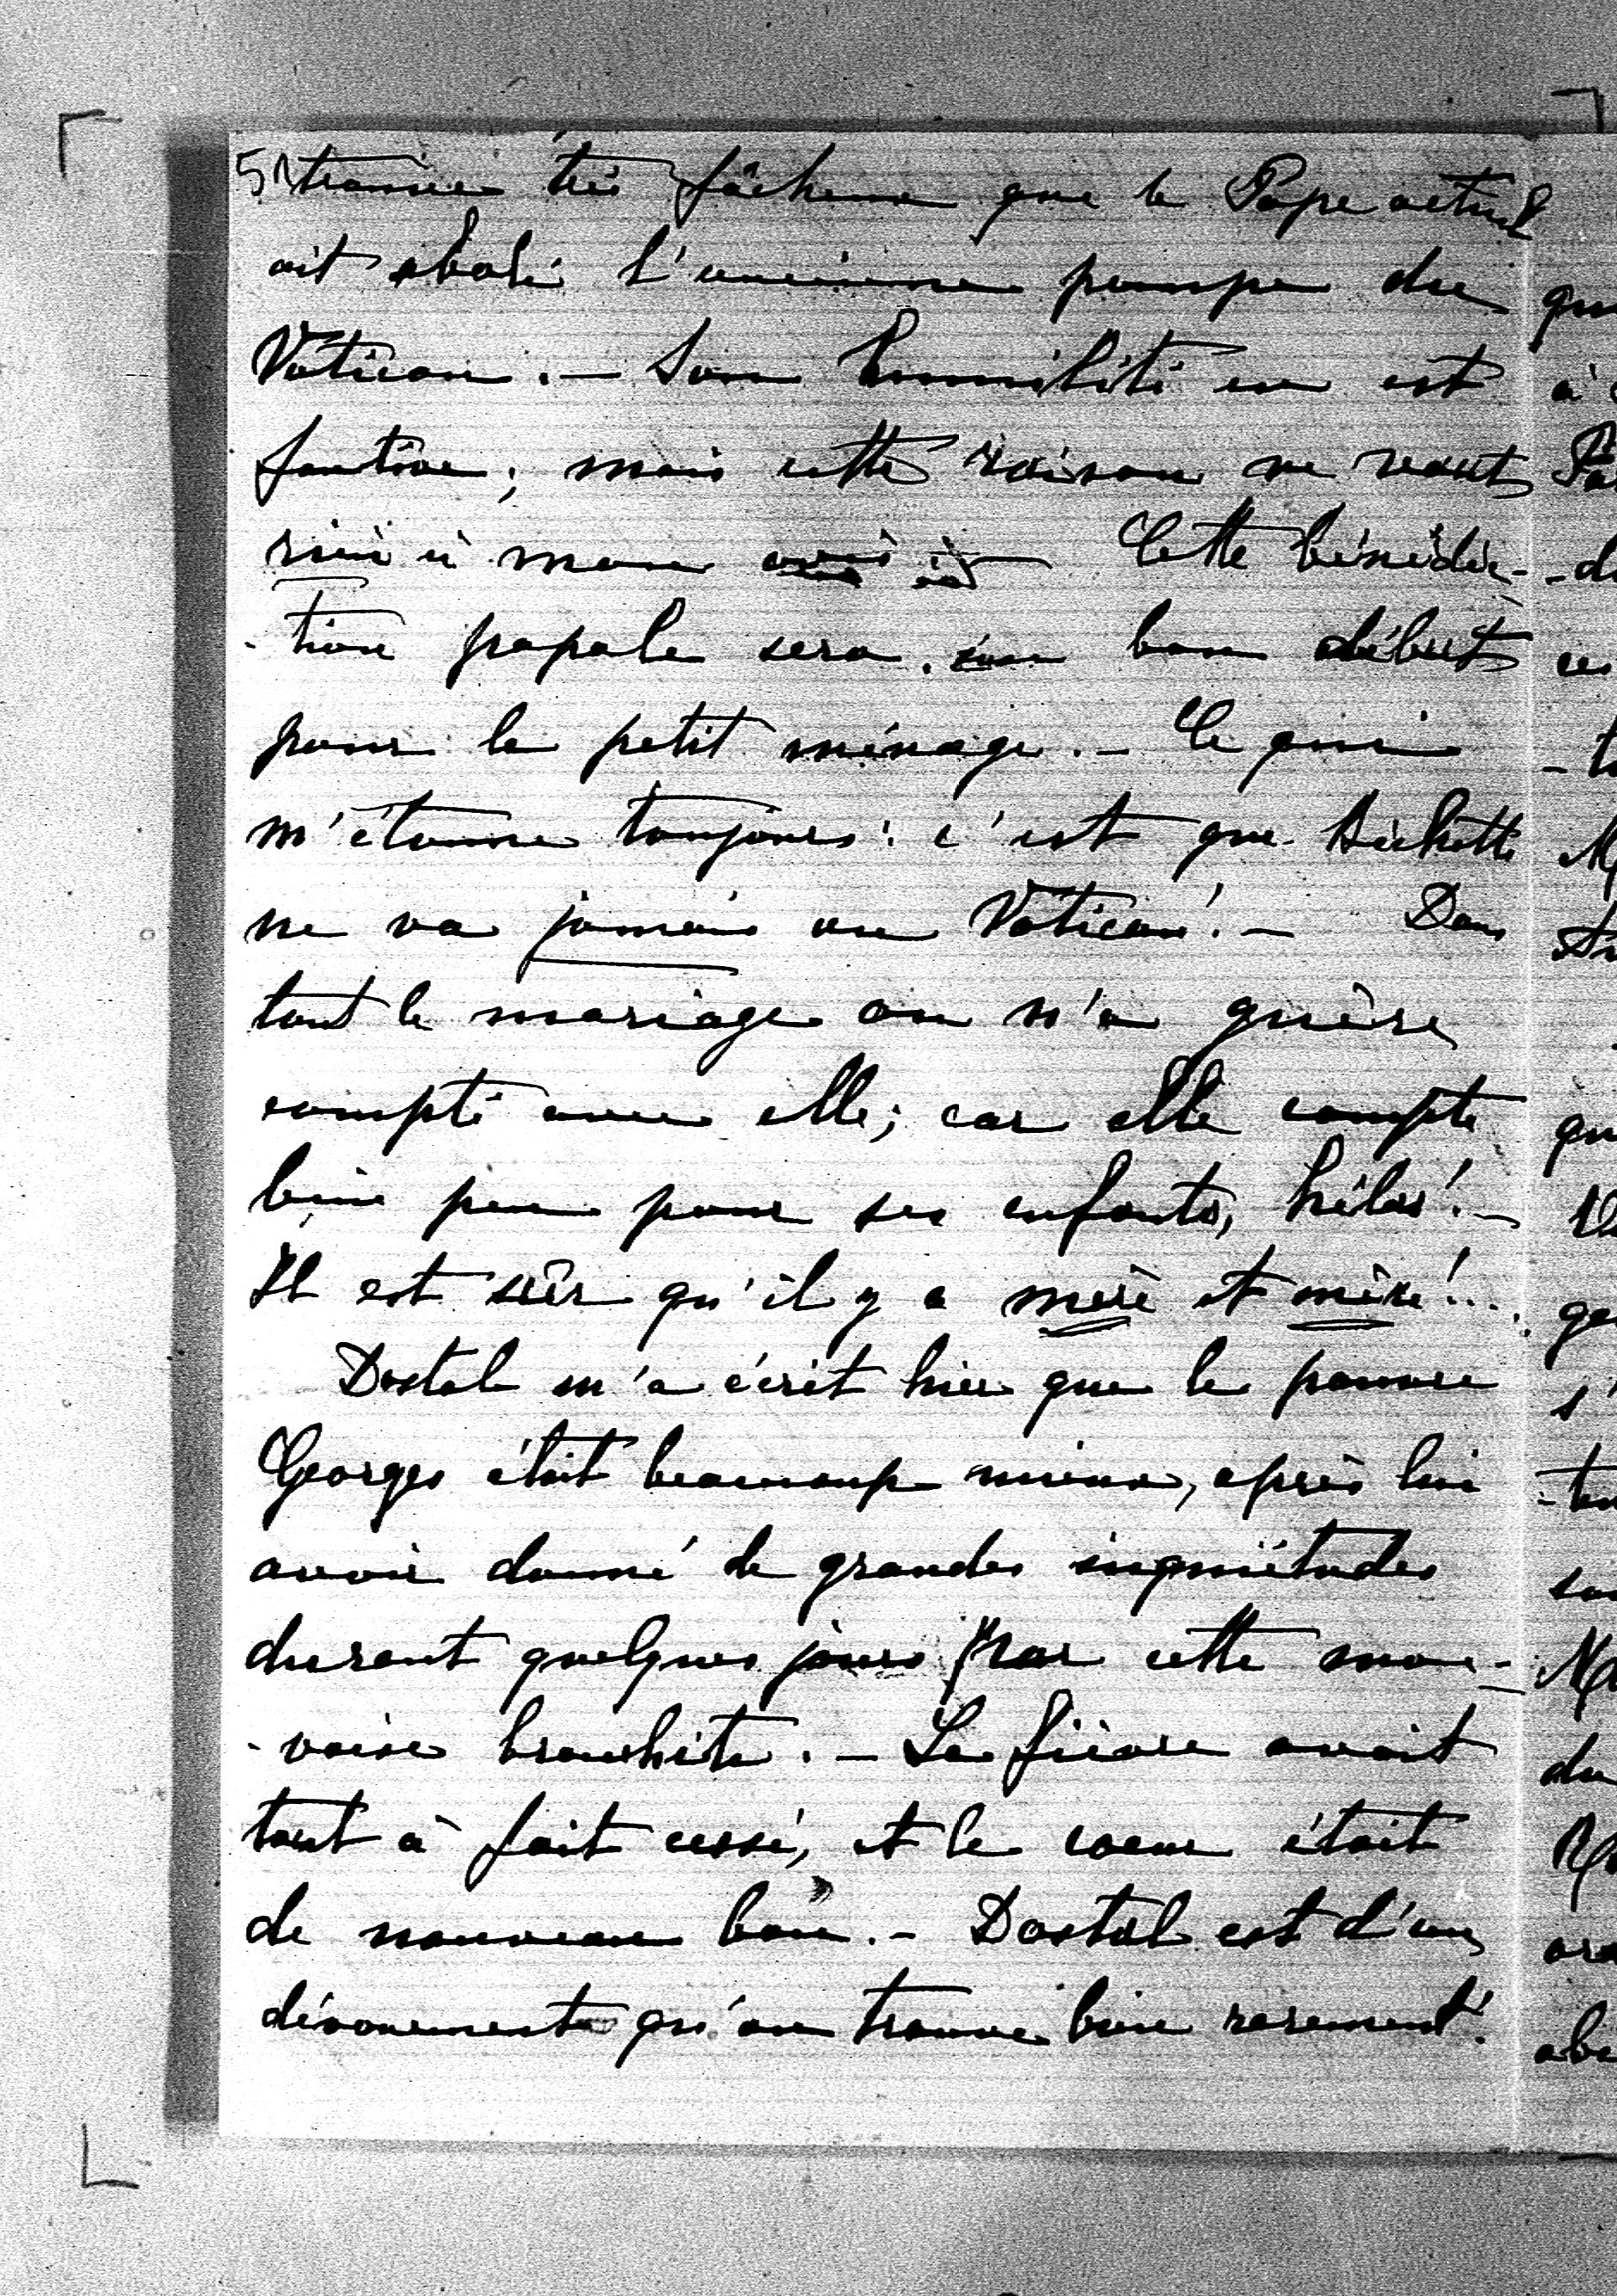 5) trouve très fâcheux que le Pape actuel
ait aboli l'ancienne pompe du
Vatican. — Son humilité en est
fautive; mais cette raison ne vaut
rien à mon avis Cette bénédic-
-tion papale sera un bon début
pour le petit ménage. — Ce qui
m'étonne toujours: c'est que
ne va jamais au Vatican! — Dans
tout le mariage on n'a guère
compté avec elle; car elle compte
bien peu pour ses enfants, hélas! —
Il est sûr qu'il y a mère et mère!...
Dostal m'a écrit hier que le pauvre
Georges était beaucoup mieux, après lui
avoir donné de grandes inquiétudes
durant quelques jours par cette mau-
-vaise bronchite. — La fièvre avait
tout à fait cessé, et le coeur était
de nouveau bon. — Dostal est d'un
dévouement qu'on trouve bien rarement!